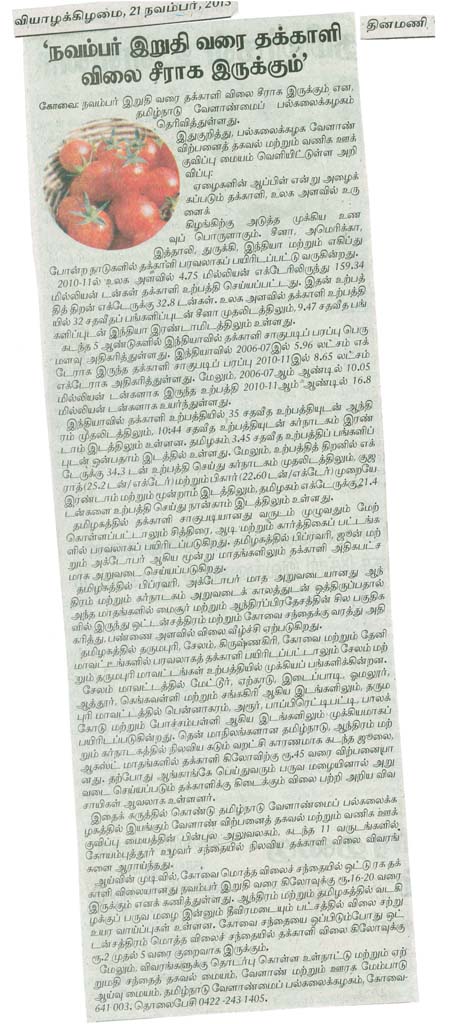 வியாழக்கிழமை, 21 நவம்பர், 2013
தினமணி
‘நவம்பர் இறுதி வரை தக்காளி
விலை சீராக இருக்கும்’
கோவை: நவம்பர் இறுதி வரை தக்காளி விலை சீராக இருக்கும் என,
தமிழ்நாடு வேளாண்மைப் பல்கலைக்கழகம்
தெரிவித்துள்ளது.
இதுகுறித்து, பல்கலைக்கழக வேளாண்
விற்பனைத் தகவல் மற்றும் வணிக ஊக்
குவிப்பு மையம் வெளியிட்டுள்ள அறி
விப்பு:
ஏழைகளின் ஆப்பிள் என்று அழைக்
கப்படும் தக்காளி, உலக அளவில் உரு
ளைக்
கிழங்கிற்கு அடுத்த முக்கிய உண
வுப் பொருளாகும். சீனா, அமெரிக்கா,
இத்தாலி, துருக்கி, இந்தியா மற்றும் எகிப்து
போன்ற நாடுகளில் தக்காளி பரவலாகப் பயிரிடப்பட்டு வருகின்றது.
2010-11ல் உலக அளவில் 4.75 மில்லியன் எக்டேரிலிருந்து 159.34
மில்லியன் டன்கள் தக்காளி உற்பத்தி செய்யப்பட்டது. இதன் உற்பத்
தித் திறன் எக்டேருக்கு 32.8 டன்கள். உலக அளவில் தக்காளி உற்பத்தி
யில் 32 சதவீதப் பங்களிப்புடன் சீனா முதலிடத்திலும், 9.47 சதவீத பங்
களிப்புடன் இந்தியா இரண்டாமிடத்திலும் உள்ளது.
கடந்த 5 ஆண்டுகளில் இந்தியாவில் தக்காளி சாகுபடிப் பரப்பு பெரு
மளவு அதிகரித்துள்ளது. இந்தியாவில் 2006-07இல் 5.96 லட்சம் எக்
டேராக இருந்த தக்காளி சாகுபடிப் பரப்பு 2010-11இல் 8.65 லட்சம்
எக்டேராக அதிகரித்துள்ளது. மேலும், 2006-07ஆம் ஆண்டில் 10.05
மில்லியன் டன்களாக இருந்த உற்பத்தி 2010-11ஆம் ஆண்டில் 16.8
மில்லியன் டன்களாக உயர்ந்துள்ளது.
இந்தியாவில் தக்காளி உற்பத்தியில் 35 சதவீத உற்பத்தியுடன் ஆந்தி
ரம் முதலிடத்திலும், 10:44 சதவீத உற்பத்தியுடன் கர்நாடகம் இரண்
டாம் இடத்திலும் உள்ளன. தமிழகம், 3.45 சதவீத உற்பத்திப் பங்களிப்
புடன் ஒன்பதாம் இடத்தில் உள்ளது. மேலும், உற்பத்தித் திறனில் எக்
டேருக்கு 34.3 டன் உற்பத்தி செய்து கர்நாடகம் முதலிடத்திலும், குஜ
ராத் (25.2 டன்/எக்டேர்) மற்றும் பிகார் (22.60 டன்/எக்டேர்) முறையே
இரண்டாம் மற்றும் மூன்றாம் இடத்திலும், தமிழகம் எக்டேருக்கு 21.4
டன்களை உற்பத்தி செய்து நான்காம் இடத்திலும் உள்ளது.
தமிழகத்தில் தக்காளி சாகுபடியானது வருடம் முழுவதும் மேற்
கொள்ளப்பட்டாலும் சித்திரை, ஆடி மற்றும் கார்த்திகைப் பட்டங்க
ளில் பரவலாகப் பயிரிடப்படுகிறது. தமிழகத்தில் பிப்ரவரி, ஜூன் மற்
றும் அக்டோபர் ஆகிய மூன்று மாதங்களிலும் தக்காளி அதிகபட்ச
மாக அறுவடை செய்யப்படுகிறது.
தமிழகத்தில் பிப்ரவரி, அக்டோபர் மாத அறுவடையானது ஆந்
திரம் மற்றும் கர்நாடகம் அறுவடைக் காலத்துடன் ஒத்திருப்பதால்
அந்த மாதங்களில் மைசூர் மற்றும் ஆந்திரப்பிரதேசத்தின் சில பகுதிக
ளில் இருந்து ஒட்டன்சத்திரம் மற்றும் கோவை சந்தைக்கு வரத்து அதி
கரித்து, பண்ணை அளவில் விலை வீழ்ச்சி ஏற்படுகிறது.
தமிழகத்தில் தருமபுரி, சேலம், கிருஷ்ணகிரி, கோவை மற்றும் தேனி
மாவட்டங்களில் பரவலாகத் தக்காளி பயிரிடப்பட்டாலும் சேலம் மற்
றும் தருமபுரி மாவட்டங்கள் உற்பத்தியில் முக்கியப் பங்களிக்கின்றன.
சேலம் மாவட்டத்தில் மேட்டூர், ஏற்காடு, இடைப்பாடி, ஓமலூர்,
ஆத்தூர், கெங்கவள்ளி மற்றும் சங்ககிரி ஆகிய இடங்களிலும், தரும
புரி மாவட்டத்தில் பென்னாகரம், அரூர், பாப்பிரெட்டிபட்டி, பாலக்
கோடு மற்றும் போச்சம்பள்ளி ஆகிய இடங்களிலும் முக்கியமாகப்
பயிரிடப்படுகின்றது. தென் மாநிலங்களான தமிழ்நாடு, ஆந்திரம் மற்
றும் கர்நாடகத்தில் நிலவிய கடும் வறட்சி காரணமாக கடந்த ஜூலை,
ஆகஸ்ட் மாதங்களில் தக்காளி கிலோவிற்கு ரூ.45 வரை விற்பனையா
னது. தற்போது ஆங்காங்கே பெய்துவரும் பருவ மழையினால் அறு
வடை செய்யப்படும் தக்காளிக்கு கிடைக்கும் விலை பற்றி அறிய விவ
சாயிகள் ஆவலாக உள்ளனர்.
இதைக் கருத்தில் கொண்டு தமிழ்நாடு வேளாண்மைப் பல்கலைக்க
ழகத்தில் இயங்கும் வேளாண் விற்பனைத் தகவல் மற்றும் வணிக ஊக்
குவிப்பு மையத்தின் பின்புல அலுவலகம், கடந்த 11 வருடங்களில்
கோயம்புத்தூர் உழவர் சந்தையில் நிலவிய தக்காளி விலை விவரங்
களை ஆராய்ந்தது.
ஆய்வின் முடிவில், கோவை மொத்த விலைச் சந்தையில் ஒட்டு ரக தக்
காளி விலையானது நவம்பர் இறுதி வரை கிலோவுக்கு ரூ.16-20 வரை
இருக்கும் எனக் கணித்துள்ளது. ஆந்திரம் மற்றும் தமிழகத்தில் வடகி
ழக்குப் பருவ மழை இன்னும் தீவிரமடையும் பட்சத்தில் விலை சற்று
உயர வாய்ப்புகள் உள்ளன. கோவை சந்தையை ஒப்பிடும்போது ஒட்
டன்சத்திரம் மொத்த விலைச் சந்தையில் தக்காளி விலை கிலோவுக்கு
ரூ.2 முதல் 5 வரை குறைவாக இருக்கும்.
மேலும், விவரங்களுக்கு தொடர்பு கொள்ள உள்நாட்டு மற்றும் ஏற்
றுமதி சந்தைத் தகவல் மையம், வேளாண் மற்றும் ஊரக மேம்பாடு
ஆய்வு மையம், தமிழ்நாடு வேளாண்மைப் பல்கலைக்கழகம், கோவை-
641 003. தொலைபேசி 0422 -243 1405.